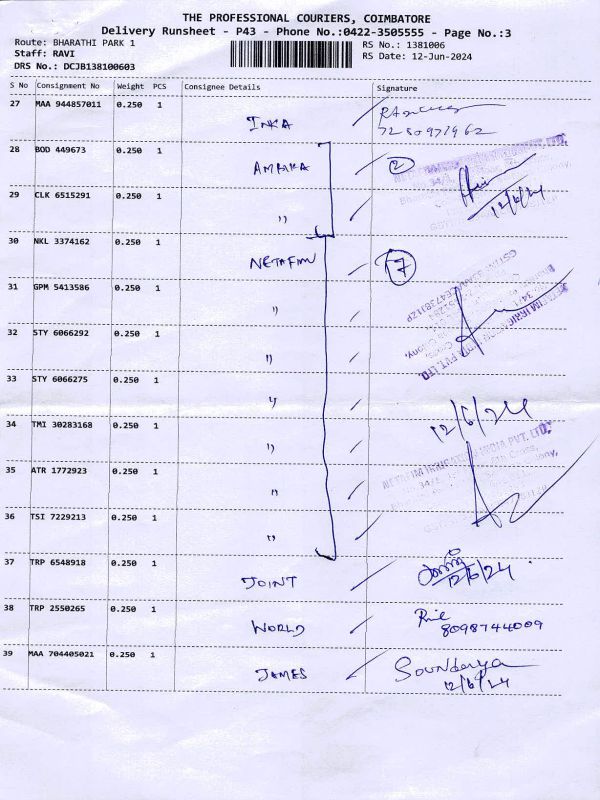 THE PROFESSIONAL COURIERS, COIMBATORE
Delivery Runsheet - P43 - Phone No.:0422-3505555 - Page No.:3
Route: BHARATHI PARK 1 RS No.: 1381006
Staff: RAVI RS Date: 12-Jun-2024
DRS No.: DCJB138100603
S No Consignment No Weight PCS Consignee Details Signature
27 MAA 944857011 0.250 1 INKA
28 BOD 449673 0.250 1 2
29 CLK 6515291 0.250 1 " 12/6/24
30 NKL 3374162 0.250 1 NETAFIM 7
31 GPM 5413586 0.250 1 "
32 STY 6066292 0.250 1 "
33 STY 6066275 0.250 1 "
12/6/24
34 TMI 30283168 0.250 1 "
NETAFIM IRRIGATION INDIA PVT. LTD.
35 ATR 1772923 0.250 1 "
36 TSI 7229213 0.250 1 "
37 TRP 6548918 0.250 1 JOINT 12/6/24
38 TRP 2550265 0.250 1 WORLD 8098744009
39 MAA 704405021 0.250 1 JAMES Soundarya
12/6/24